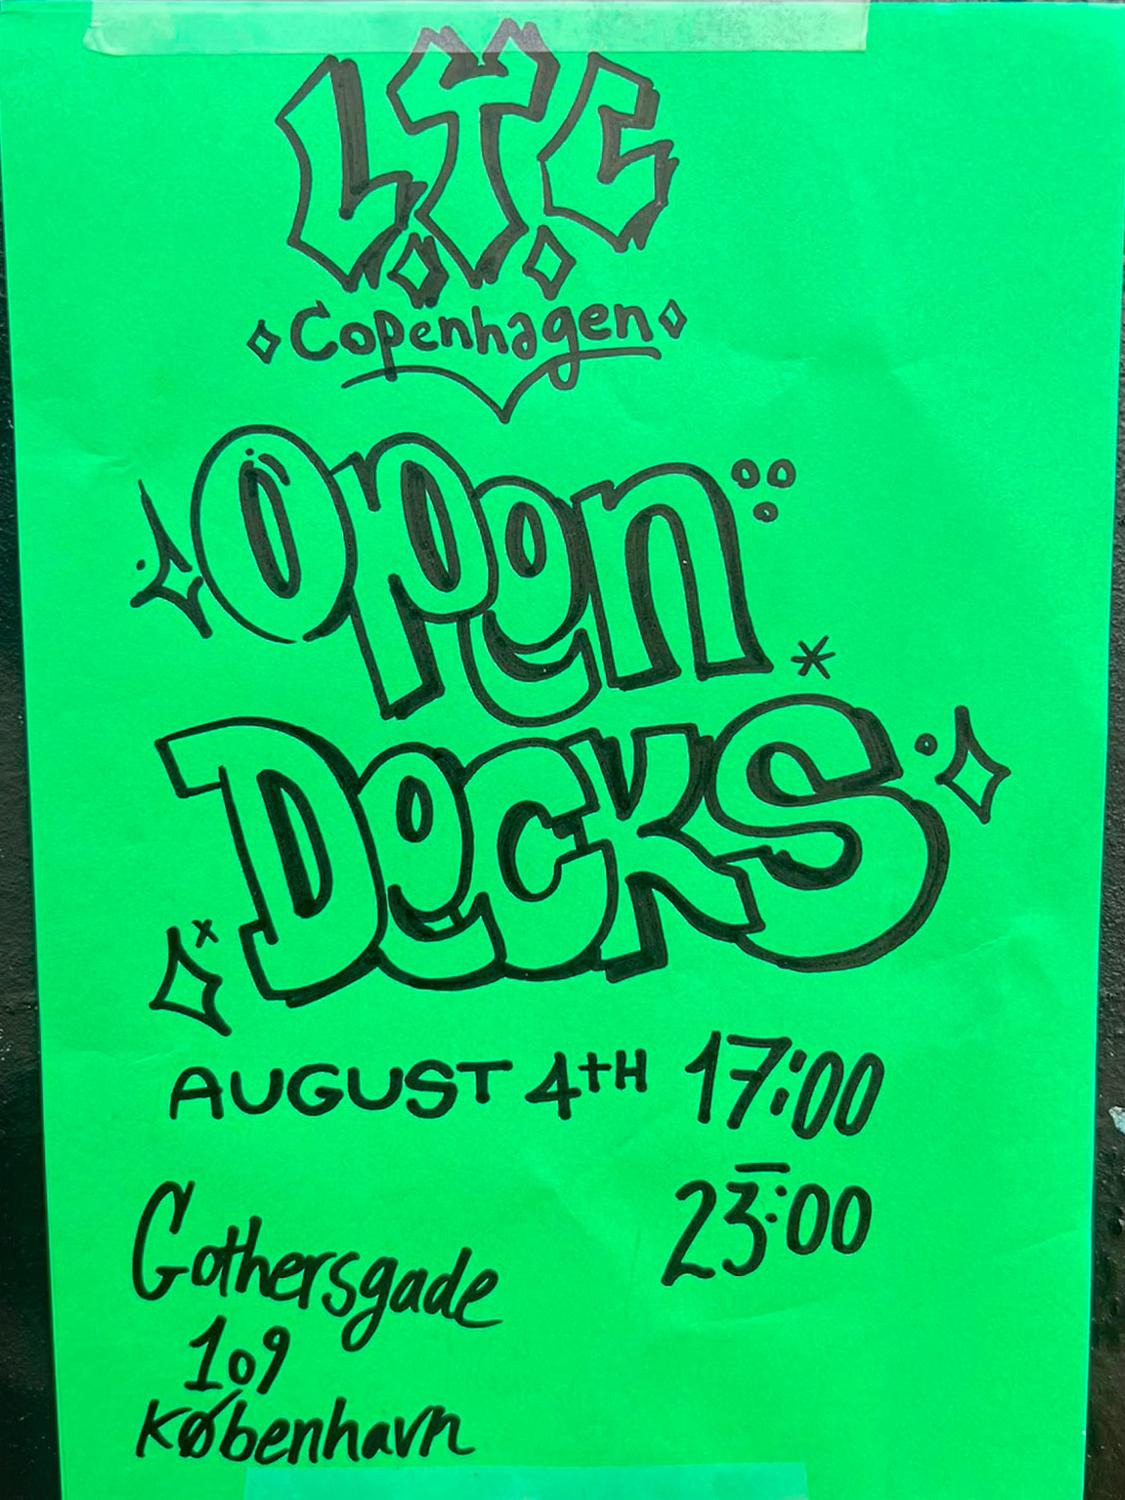 L.T.C
Copenhagen
Open
Decks
AUGUST 4TH 17:00
–
23:00
Gothersgade
109
København